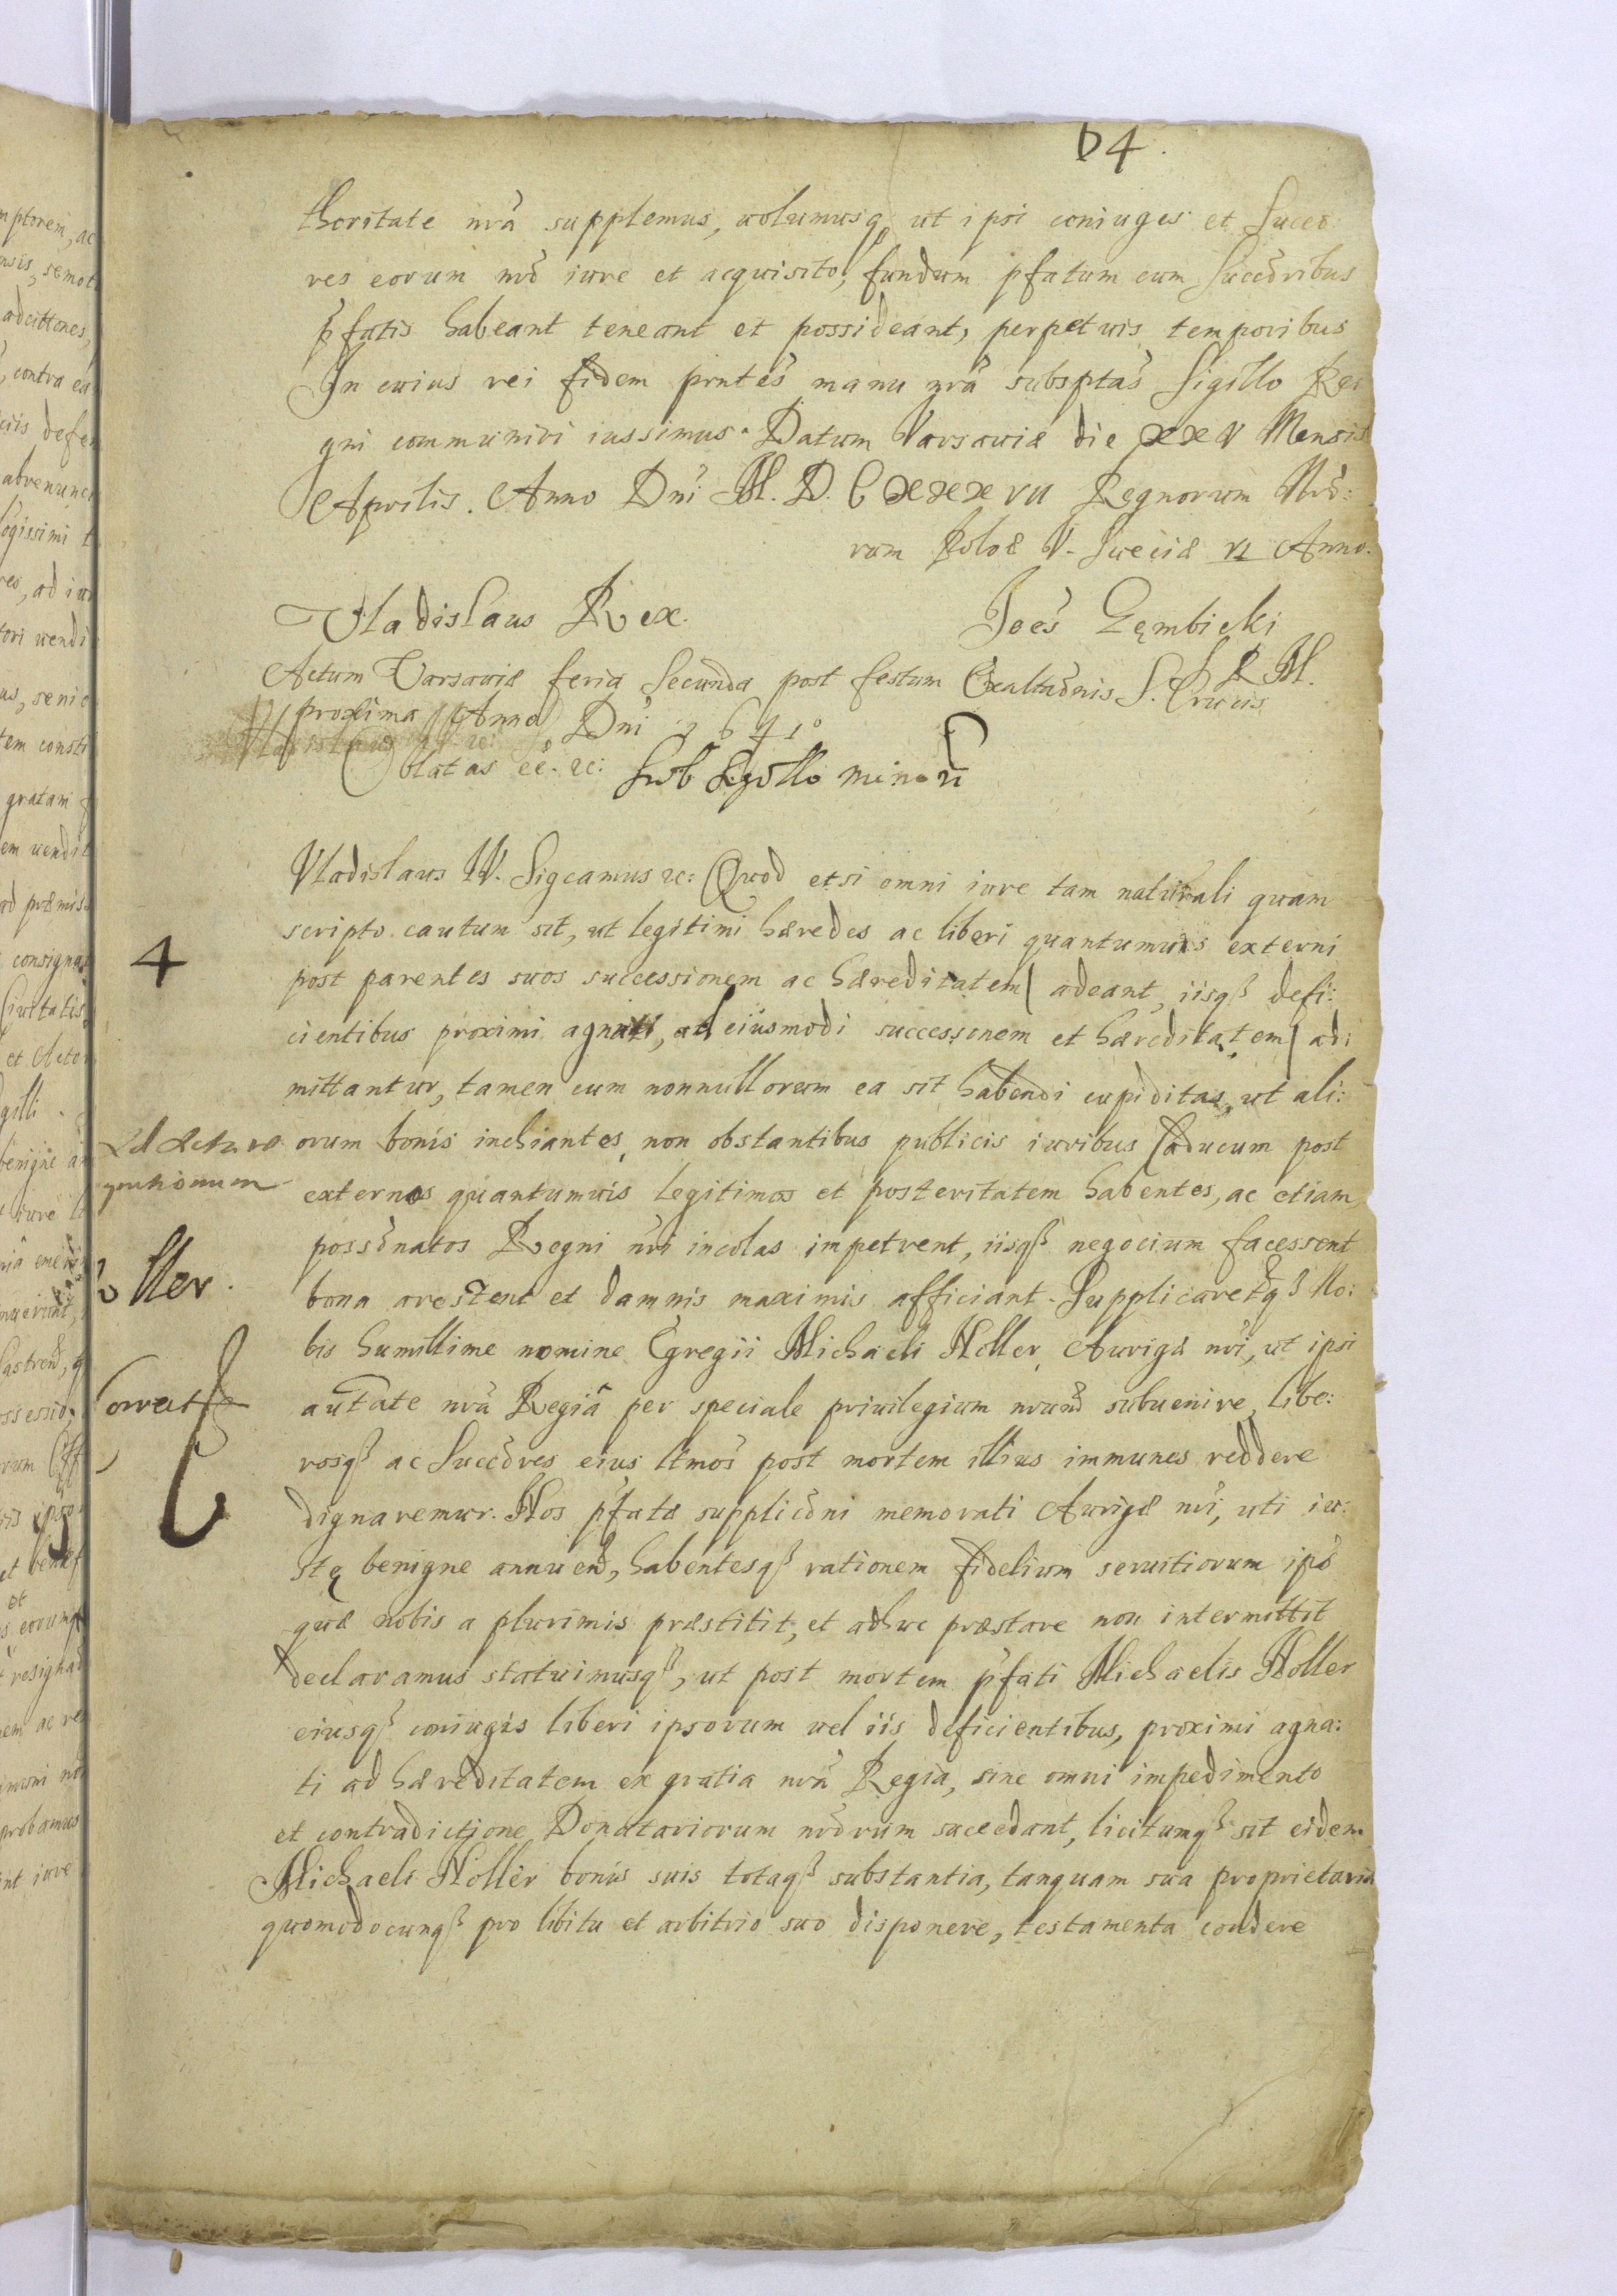 64.
thoritate nrâ supplemus, volumusq ut ipsi coniuges et Succes:
res eorum nrô iure et acquisito, fundum pfatum cum Succôribus
pfatis habeant teneant et possideant, perpetuis temporibus
In cuius rei fidem pnntês manu nrâ subsptas Sigillo Re:
gni communiri iussimus. Datum Varsaviæ die XXV Mensis
Aprilis. Anno Dni M.D.CXXXVII Regnorum Nrô:
rum Poloæ V. Sueciæ VI Anno.
Vladislaus Rex. Joês Zembicki
S R M.
Actum Varsaviæ feria Secunda post festum Exaltaônis S. Crucis
proxima Anno Dni 1641°
Oblatas etc. etc: Sub Sigillo minori
Vladislaus IV. Sigcamus etc: Quod etsi omni iure tam naturali quam
scripto cautum sit, ut legitimi hæredes ac liberi quantumuis externi
4
post parentes suos successionem ac hæreditatem adeant, iisq defi:
cientibus proximi agnati, ad eiusmodi successionem et hæreditatem ad:
mittantur, tamen cum nonnullorum ea sit habendi cupiditas, ut ali:
orum bonis inchiantes, non obstantibus publicis iuribus Caducum post
externos quantumuis legitimos et posteritatem habentes, ac etiam
possônatos Regni nri incolas impetrent, iisq negocium facessent
ller.
bona arestent et damnis maximis afficiant. Supplicaretq No:
bis humillime nomine Egregii Michaeli Holler, Aurigæ nri, ut ipsi
autate nrâ Regiâ per speciale priuilegium nrum subuenire, libe:
rosq ac Succôres eius ltmos post mortem illius immunes reddere
dignaremur. Nos pfatæ supplicôni memorati Aurigæ nri, uti iu:
stę benigne annuend, habentesq rationem fidelium seruitiorum ips
quæ nobis a plurimis præstitit, et adhuc præstare non intermittit
declaramus statuimusq, ut post mortem pfati Michaelis Holler
eiusq coniugis liberi ipsorum uel iis deficientibus, proximi agna:
ti ad hæreditatem ex gratia nrâ Regia, sine omni impedimento
et contradictione Donatariorum nrôrum succedant, licitumq sit eidem
Michaeli Holler bonis suis totaq substantia, tanquam sua proprietaria
quomodocunq pro libitu et arbitrio suo disponere, testamenta condere